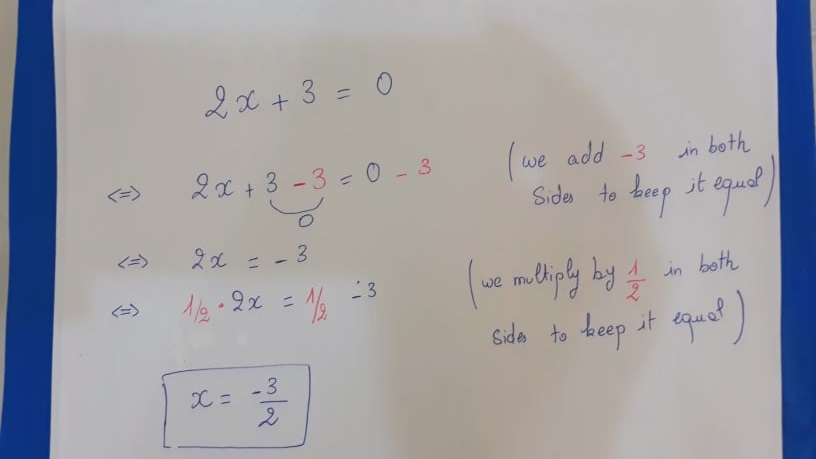 2x + 3 = 0
<=> 2x + 3 - 3 = 0 - 3 (we add -3 in both
0 sides to keep it equal)
<=> 2x = - 3
<=> 1/2 · 2x = 1/2 · -3 (we multiply by 1/2 in both
sides to keep it equal)
x = -3/2